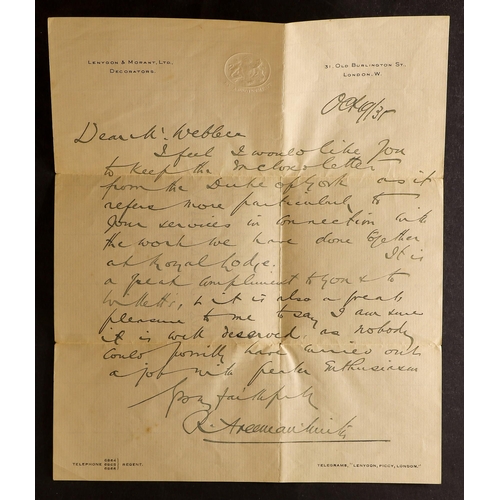 LENYGON & MORANT, LTD.
DECORATORS.
31, OLD BURLINGTON ST.
LONDON, W.
Oct 9/31
Dear Mr Webber
I feel I would like you
to keep the enclosed letter
from the Duke of York as it
refers more particularly to
your services in connection with
the work we have done together
at Royal Lodge. It is
a great compliment to you & to
& it is also a great
pleasure to me to say I am sure
it is well deserved, as nobody
could possibly have carried out
a job with greater enthusiasm
Yours faithfully
TELEPHONE REGENT.
TELEGRAMS, "LENYGON, PICCY, LONDON."